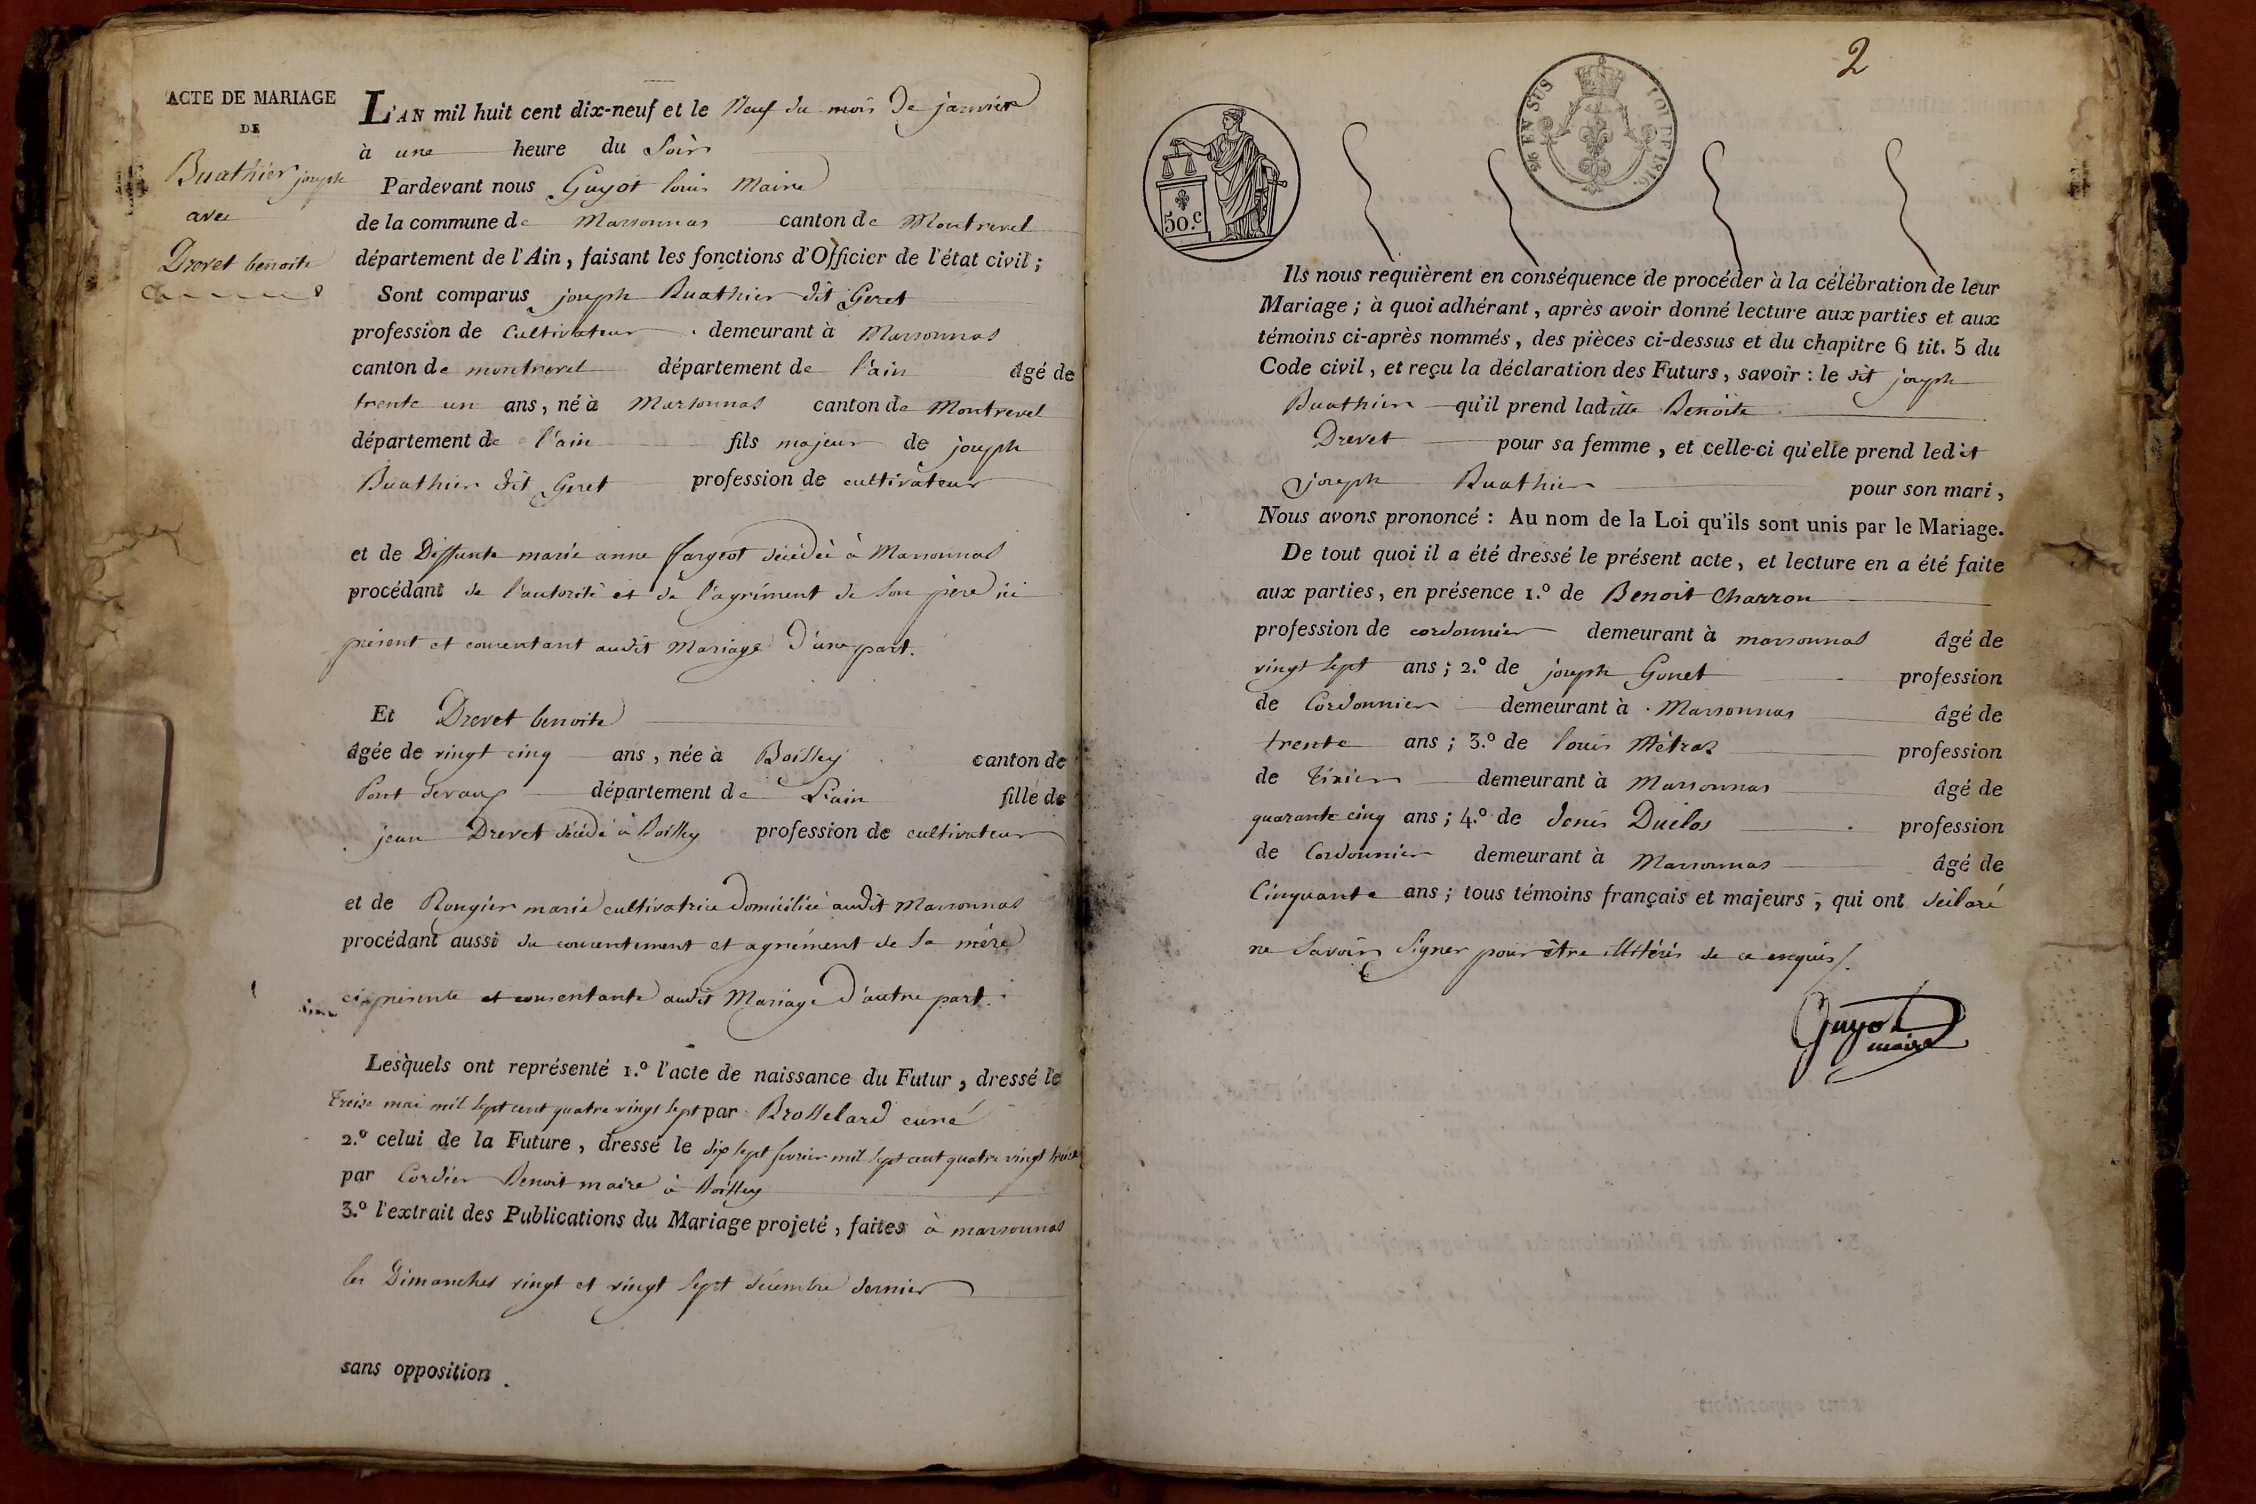 ACTE DE MARIAGE
DE
Buathier joseph
avec
Drevet benoite
L'AN mil huit cent dix-neuf et le Neuf du mois De janvier
à une heure du Soir
Pardevant nous Guyot louis Maire
de la commune de Marsonnas canton de Montrevel
département de l'Ain, faisant les fonctions d'Officier de l'état civil;
Sont comparus joseph Buathier dit Geret
profession de Cultivateur demeurant à Marsonnas
canton de montrevel département de l'ain âgé de
trente un ans, né à Marsonnas canton de Montrevel
département de l'ain fils majeur de joseph
Buathier dit Geret profession de cultivateur
et de Deffunte marie anne fargeot décédée à Marsonnas
procédant de l'autorité et de l'agrément de Son père ici
présent et consentant audit Mariage D'une part.
Et Drevet benoite
âgée de vingt cinq ans, née à Boissey canton de
Pont devaux département de L'ain fille de
jean Drevet décédé à Boissey profession de cultivateur
et de Rougier marie cultivatrice Domiciliée audit Marsonnas
procédant aussi du consentement et agrément de Sa mére
ci présente et consentante audit Mariage D'autre part.
Lesquels ont représenté 1.º l'acte de naissance du Futur, dressé le
treise mai mil Sept cent quatre vingt Sept par Brosselard curé
2.º celui de la Future, dressé le dix Sept fevrier mil Sept cent quatre vingt treise
par Cordier Benoit maire à Boissey
3.º l'extrait des Publications du Mariage projeté, faites à marsonnas
les Dimanches vingt et vingt Sept décembre dernier
sans opposition.
2
50.c
26 EN SUS
LOI DE 1816.
Ils nous requièrent en conséquence de procéder à la célébration de leur
Mariage; à quoi adhérant, après avoir donné lecture aux parties et aux
témoins ci-après nommés, des pièces ci-dessus et du chapitre 6 tit. 5 du
Code civil, et reçu la déclaration des Futurs, savoir: le dit joseph
Buathier qu'il prend laditte Benoite
Drevet pour sa femme, et celle-ci qu'elle prend ledit
joseph Buathier pour son mari,
Nous avons prononcé: Au nom de la Loi qu'ils sont unis par le Mariage.
De tout quoi il a été dressé le présent acte, et lecture en a été faite
aux parties, en présence 1.º de Benoit Charron
profession de cordonnier demeurant à marsonnas âgé de
vingt Sept ans; 2.º de joseph Gonet profession
de Cordonnier demeurant à Marsonnas âgé de
trente ans; 3.º de louis Métras profession
de Tixier demeurant à Marsonnas âgé de
quarante cinq ans; 4.º de denis Duclos profession
de Cordonnier demeurant à Marsonnas âgé de
Cinquante ans; tous témoins français et majeurs, qui ont déclaré
ne Savoir Signer pour être illitérés de ce enquis
Guyot
maire